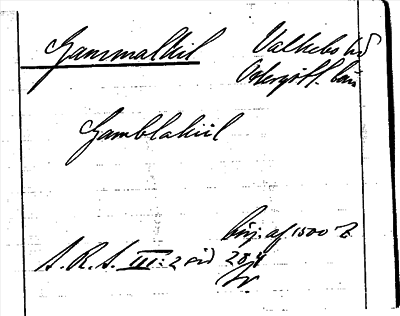 Gammalkil Valkebo hd
Östergötl. län
Gamblakiil
börj. af 1500 t.
S.R.S. III:2 sid 284